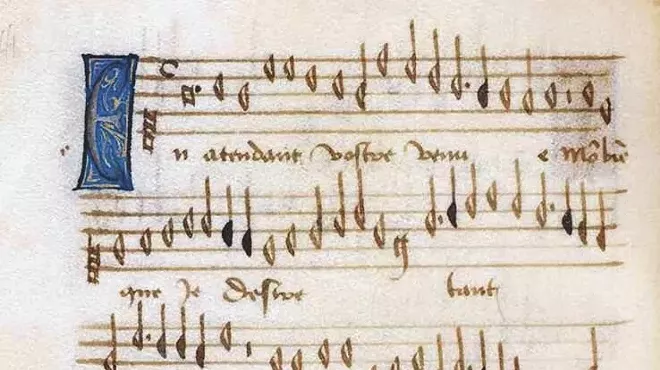 En atendant vostre venu e Mō biē
que Je desire tant